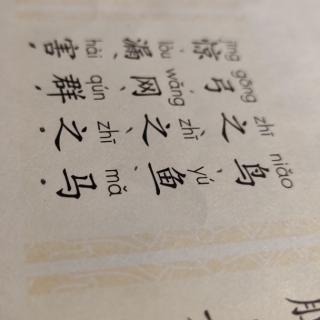 jīng gōng zhī niǎo
惊弓之鸟
lòu wǎng zhī yú
漏网之鱼
hài qún zhī mǎ
害群之马